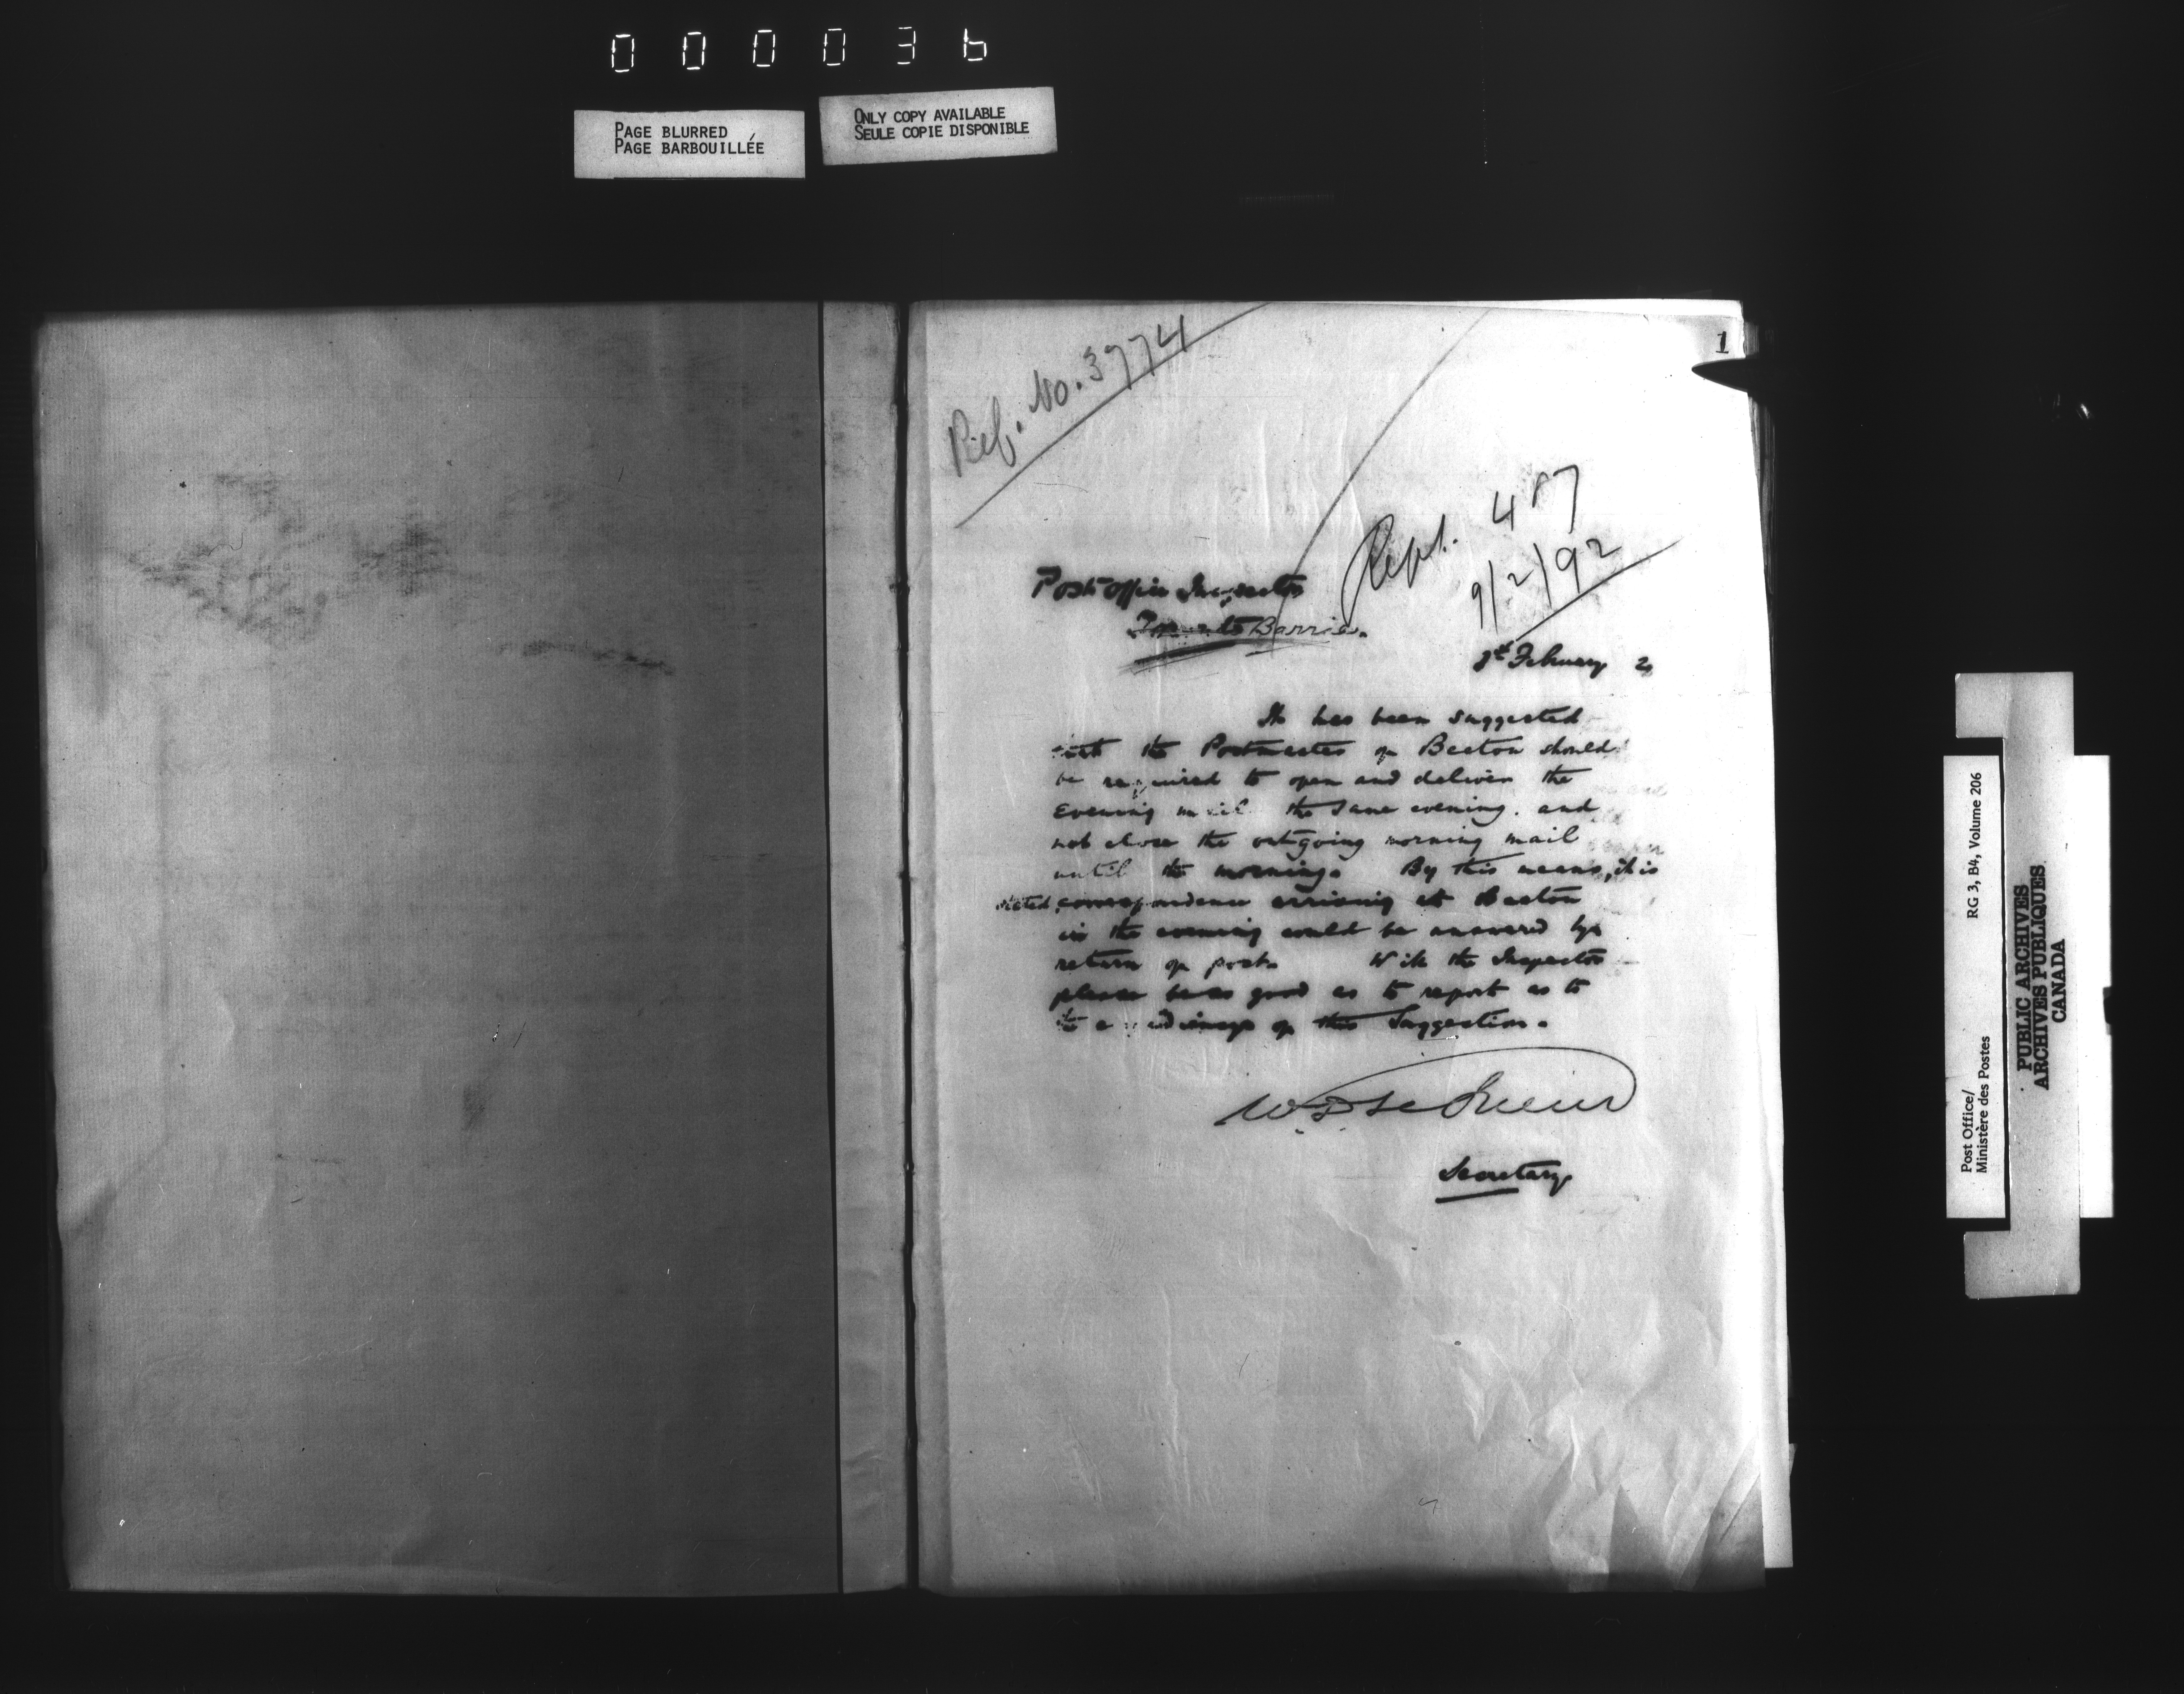 000036
PAGE BLURRED
PAGE BARBOUILLÉE
ONLY COPY AVAILABLE
SEULE COPIE DISPONIBLE
1
Ref. No. 3774
Rept. 487
9/2/92
Post Office Inspector
Toronto Barrie.
February 2
It has been suggested
that the Postmaster of Beeton should
be required to open and deliver the
Evening mail the same evening. and
not close the outgoing morning mail
until the morning. By this means, it is
stated, correspondence arriving at Beeton
in the evening could be answered by
return of post. Will the Inspector
please be so good as to report as to
the expediency of this Suggestion.
Secretary
Post Office/
Ministère des Postes
RG 3, B4, Volume 206
PUBLIC ARCHIVES
ARCHIVES PUBLIQUES
CANADA